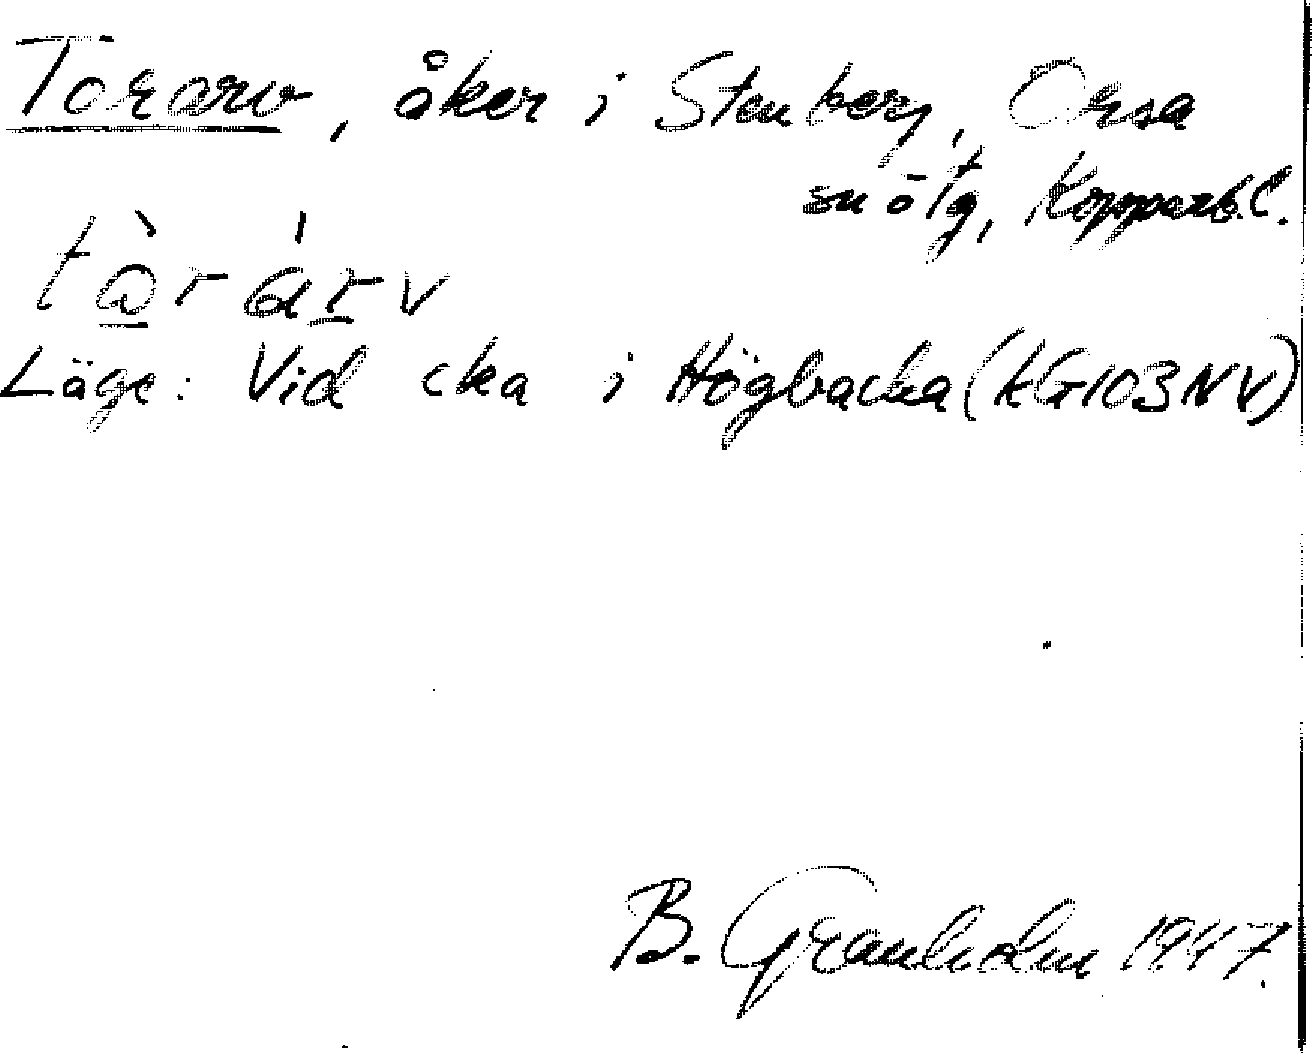 Torarv, åker i Stenberg, Orsa
sn ötg, Kopparb.l.
tàrárv
Läge: Vid cka i Högbacka (kG103NV)
B. Granholm 1947.